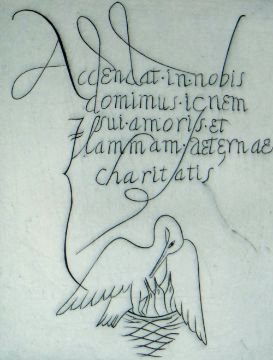 Accendat·in·nobis
dominus·ignem
sui·amoris·et
flammam·aeternae
charitatis